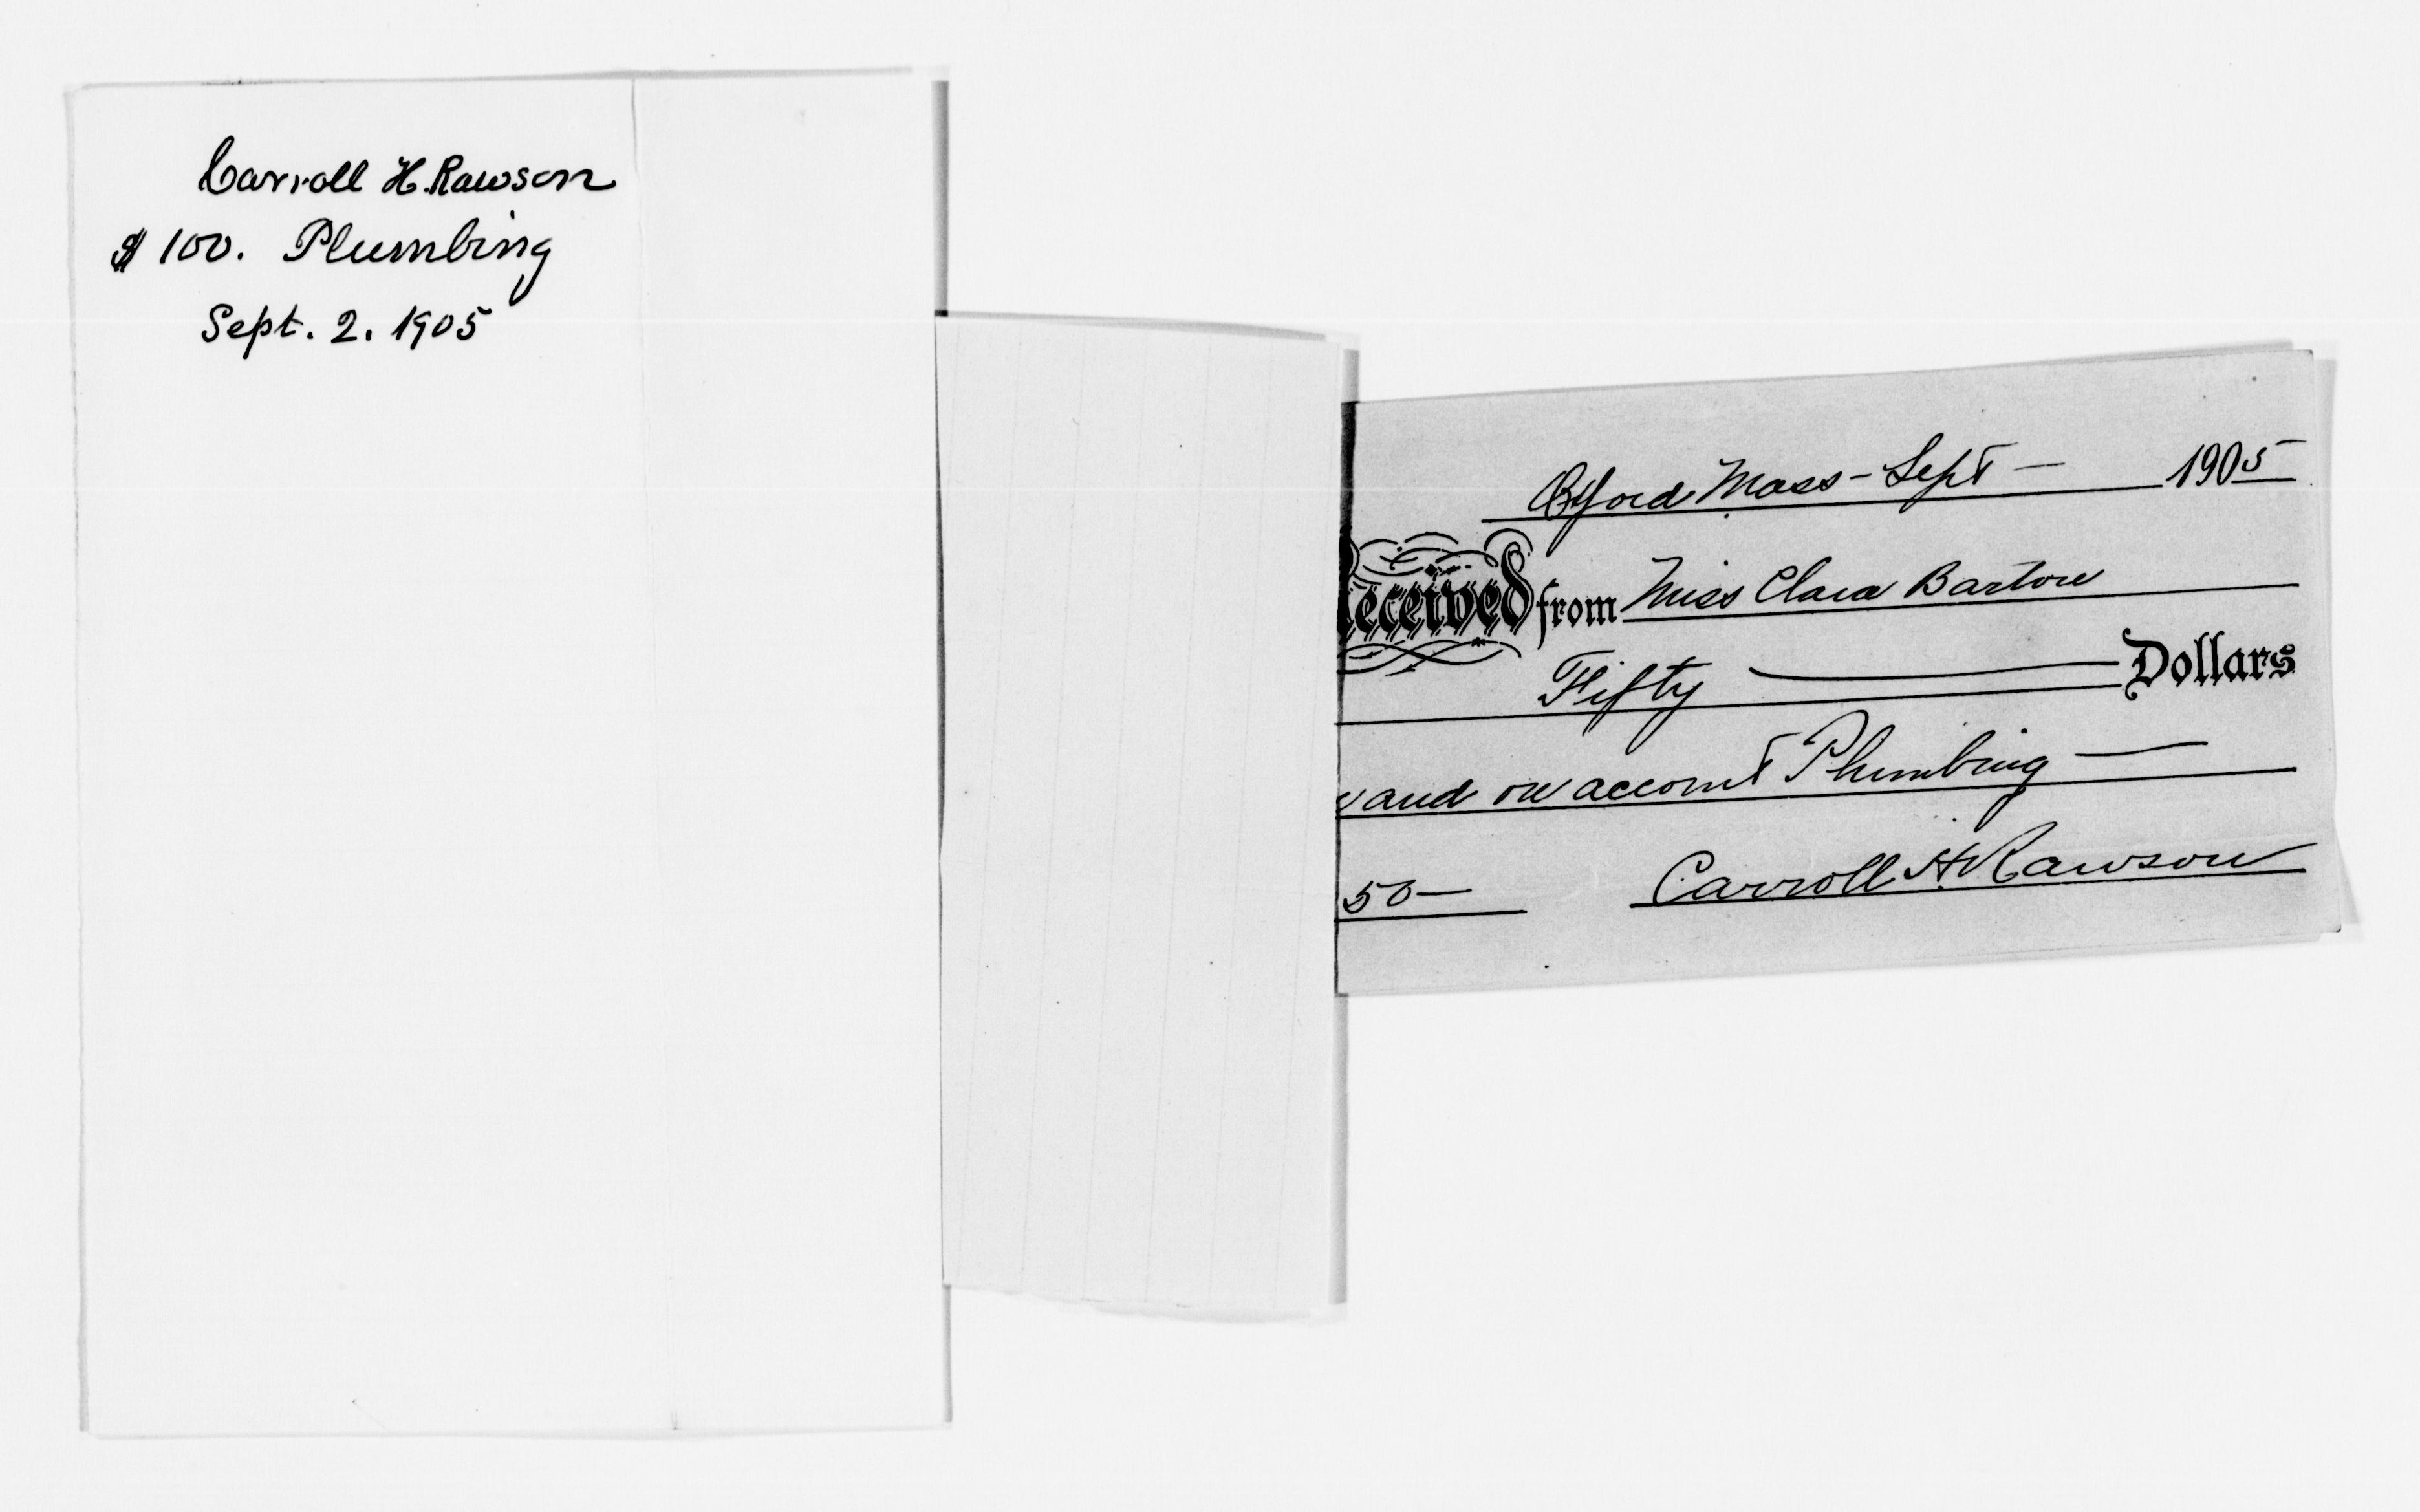 Carroll H. Rawson
$100. Plumbing
Sept. 2. 1905
Oxford Mass - Sept — 1905
Received from Miss Clara Barton
Fifty — Dollars
and on account Plumbing —
50 —
Carroll H. Rawson